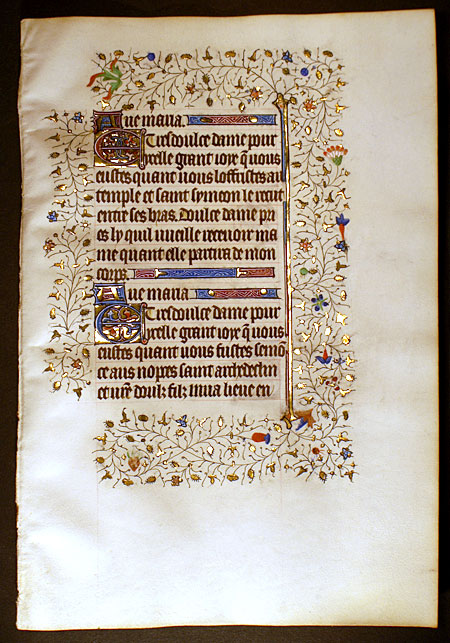 Aue maria
Et tresdoulce dame pour
ycelle grant ioye q̃ uous
eustes quant uous loffristes au
temple et saint symeon le recut
entre ses bras. Doulce dame pri
es ly quil vueille receuoir ma
me quant elle partira de mon
corps
Aue maria
Et tresdoulce dame pour
ycelle grant ioye q̃ uous
eustes quant uous fustes semo
ce aus nopces saint archedeclin
et ur̃e doulz filz mua lieue en